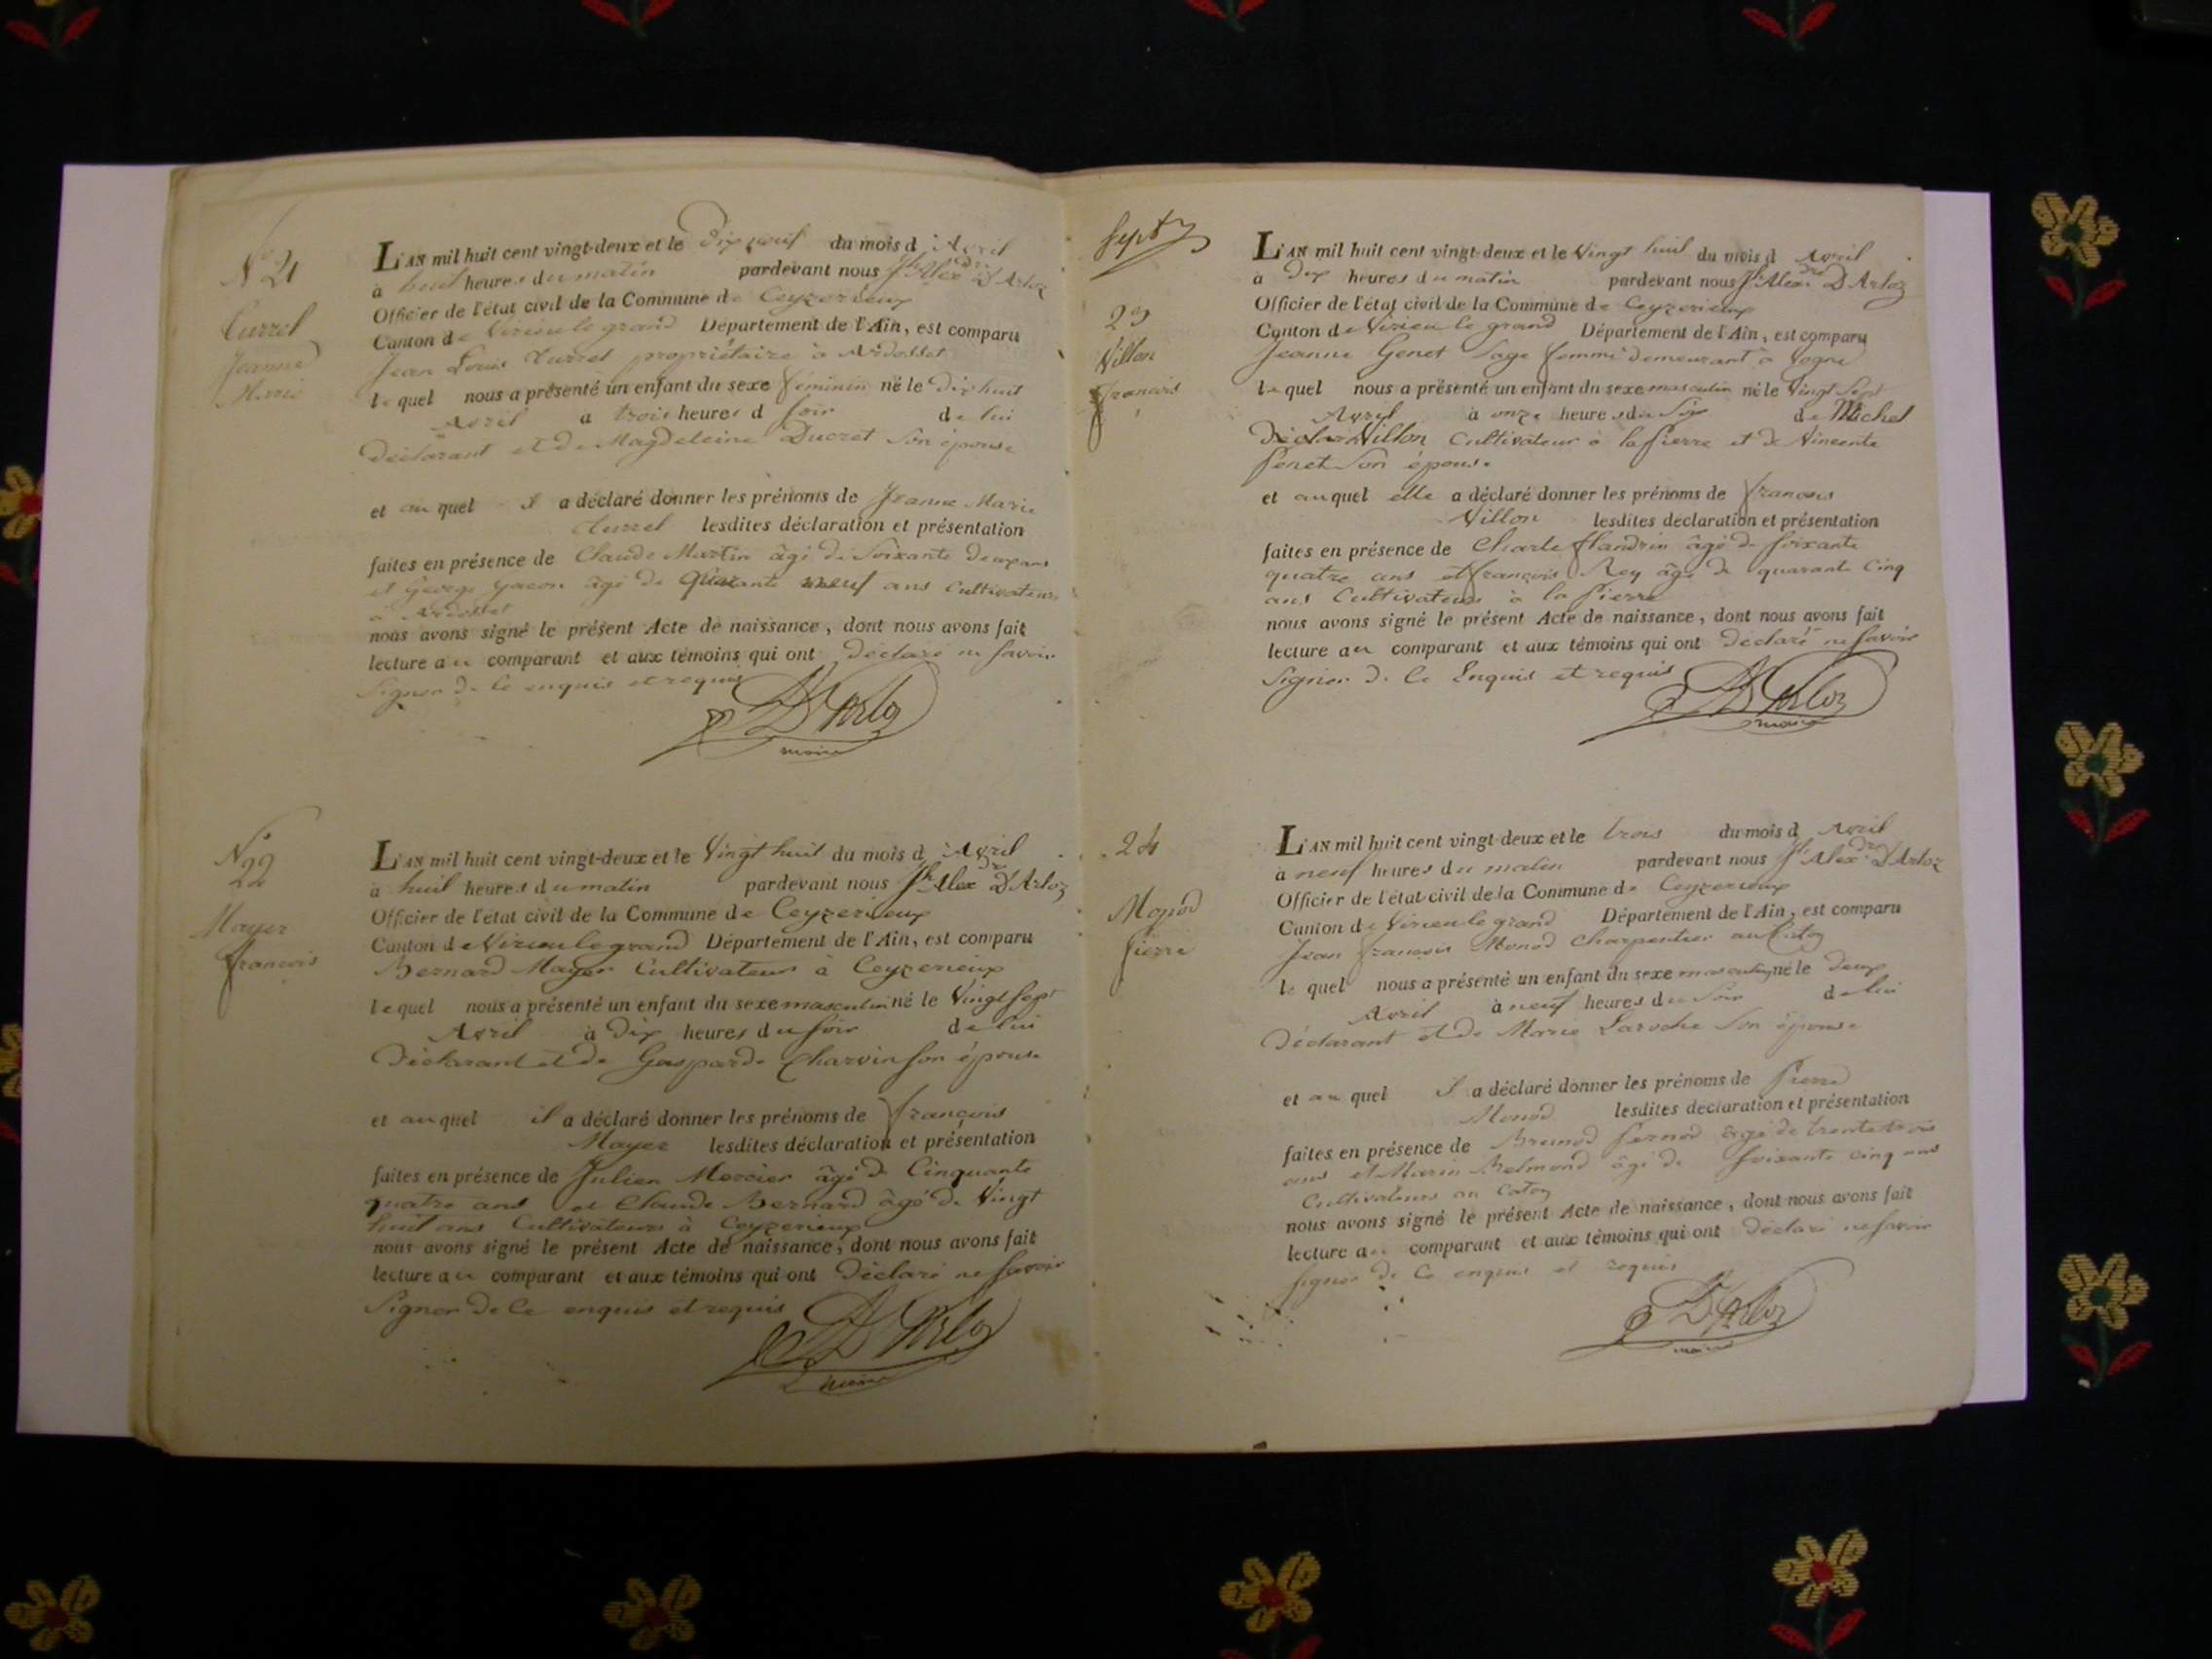 N° 21
Curzel
Jeanne
Marie
L'AN mil huit cent vingt-deux et le Dix neuf du mois d'Avril
à huit heures du matin pardevant nous Jh Alexdre D'Arloz
Officier de l'état civil de la Commune de Ceyzerieux
Canton de Virieu le grand Département de l'Ain, est comparu
Jean Louis Curzel propriétaire à Ardosset
lequel nous a présenté un enfant du sexe féminin né le dix huit
Avril a trois heures d soir de lui
Déclarant et de Magdeleine Ducret Son épouse
et auquel il a déclaré donner les prénoms de Jeanne Marie
Curzel lesdites déclaration et présentation
faites en présence de Claude Martin âgé de Soixante Deux ans
et George âgé de neuf ans Cultivateurs
à Ardosset
nous avons signé le présent Acte de naissance, dont nous avons fait
lecture au comparant et aux témoins qui ont Déclaré ne Savoir
Signer de Ce enquis et requis
D'Arloz
maire
N°
22
Mayer
françois
L'AN mil huit cent vingt-deux et le Vingt huit du mois d'Avril
à huit heures du matin pardevant nous Jh Alexdre D'Arloz
Officier de l'état civil de la Commune de Ceyzerieux
Canton de Virieu le grand Département de l'Ain, est comparu
Bernard Mayer Cultivateur à Ceyzerieux
lequel nous a présenté un enfant du sexe masculin né le Vingt Sept
Avril à Dix heures du soir de lui
Déclarant et de Gasparde Charvin son épouse
et auquel il a déclaré donner les prénoms de françois
Mayer lesdites déclaration et présentation
faites en présence de Julien Mercier âgé de Cinquante
quatre ans et Claude Bernard âgé de Vingt
huit ans Cultivateurs à Ceyzerieux
nous avons signé le présent Acte de naissance, dont nous avons fait
lecture au comparant et aux témoins qui ont Déclaré ne Savoir
Signer de Ce enquis et requis
D'Arloz
maire
23
Villon
françois
L'AN mil huit cent vingt-deux et le Vingt huit du mois d Avril
à Dix heures du matin pardevant nous Jh Alexdre D'Arloz
Officier de l'état civil de la Commune de Ceyzerieux
Canton de Virieu le grand Département de l'Ain, est comparu
Jeanne Genet Sage femme demeurant à Vogne
lequel nous a présenté un enfant du sexe masculin né le Vingt Sept
Avril à onze heures du Soir de Michel
Villon Cultivateur à la pierre et de Vincente
Genet Son épouse
et auquel elle a déclaré donner les prénoms de françois
Villon lesdites déclaration et présentation
faites en présence de Charle flandrin âgé de soixante
quatre ans et françois Rey âgé de quarante Cinq
ans Cultivateurs à la pierre
nous avons signé le présent Acte de naissance, dont nous avons fait
lecture au comparant et aux témoins qui ont Déclaré ne Savoir
Signer de Ce Enquis et requis
D'Arloz
maire
24
Monod
pierre
L'AN mil huit cent vingt-deux et le trois du mois d Avril
à neuf heures du matin pardevant nous Jh Alexdre D'Arloz
Officier de l'état civil de la Commune de Ceyzerieux
Canton de Virieu le grand Département de l'Ain, est comparu
Jean françois Monod Charpentier au
lequel nous a présenté un enfant du sexe masculin né le Deux
Avril à neuf heures du Soir de lui
Déclarant et de Marie Laroche Son épouse
et auquel il a déclaré donner les prénoms de pierre
Monod lesdites déclaration et présentation
faites en présence de âgé de trente trois
ans et Marin Belmond âgé de soixante cinq ans
Cultivateurs au
nous avons signé le présent Acte de naissance, dont nous avons fait
lecture au comparant et aux témoins qui ont Déclaré ne Savoir
signer de Ce enquis et requis
D'Arloz
maire